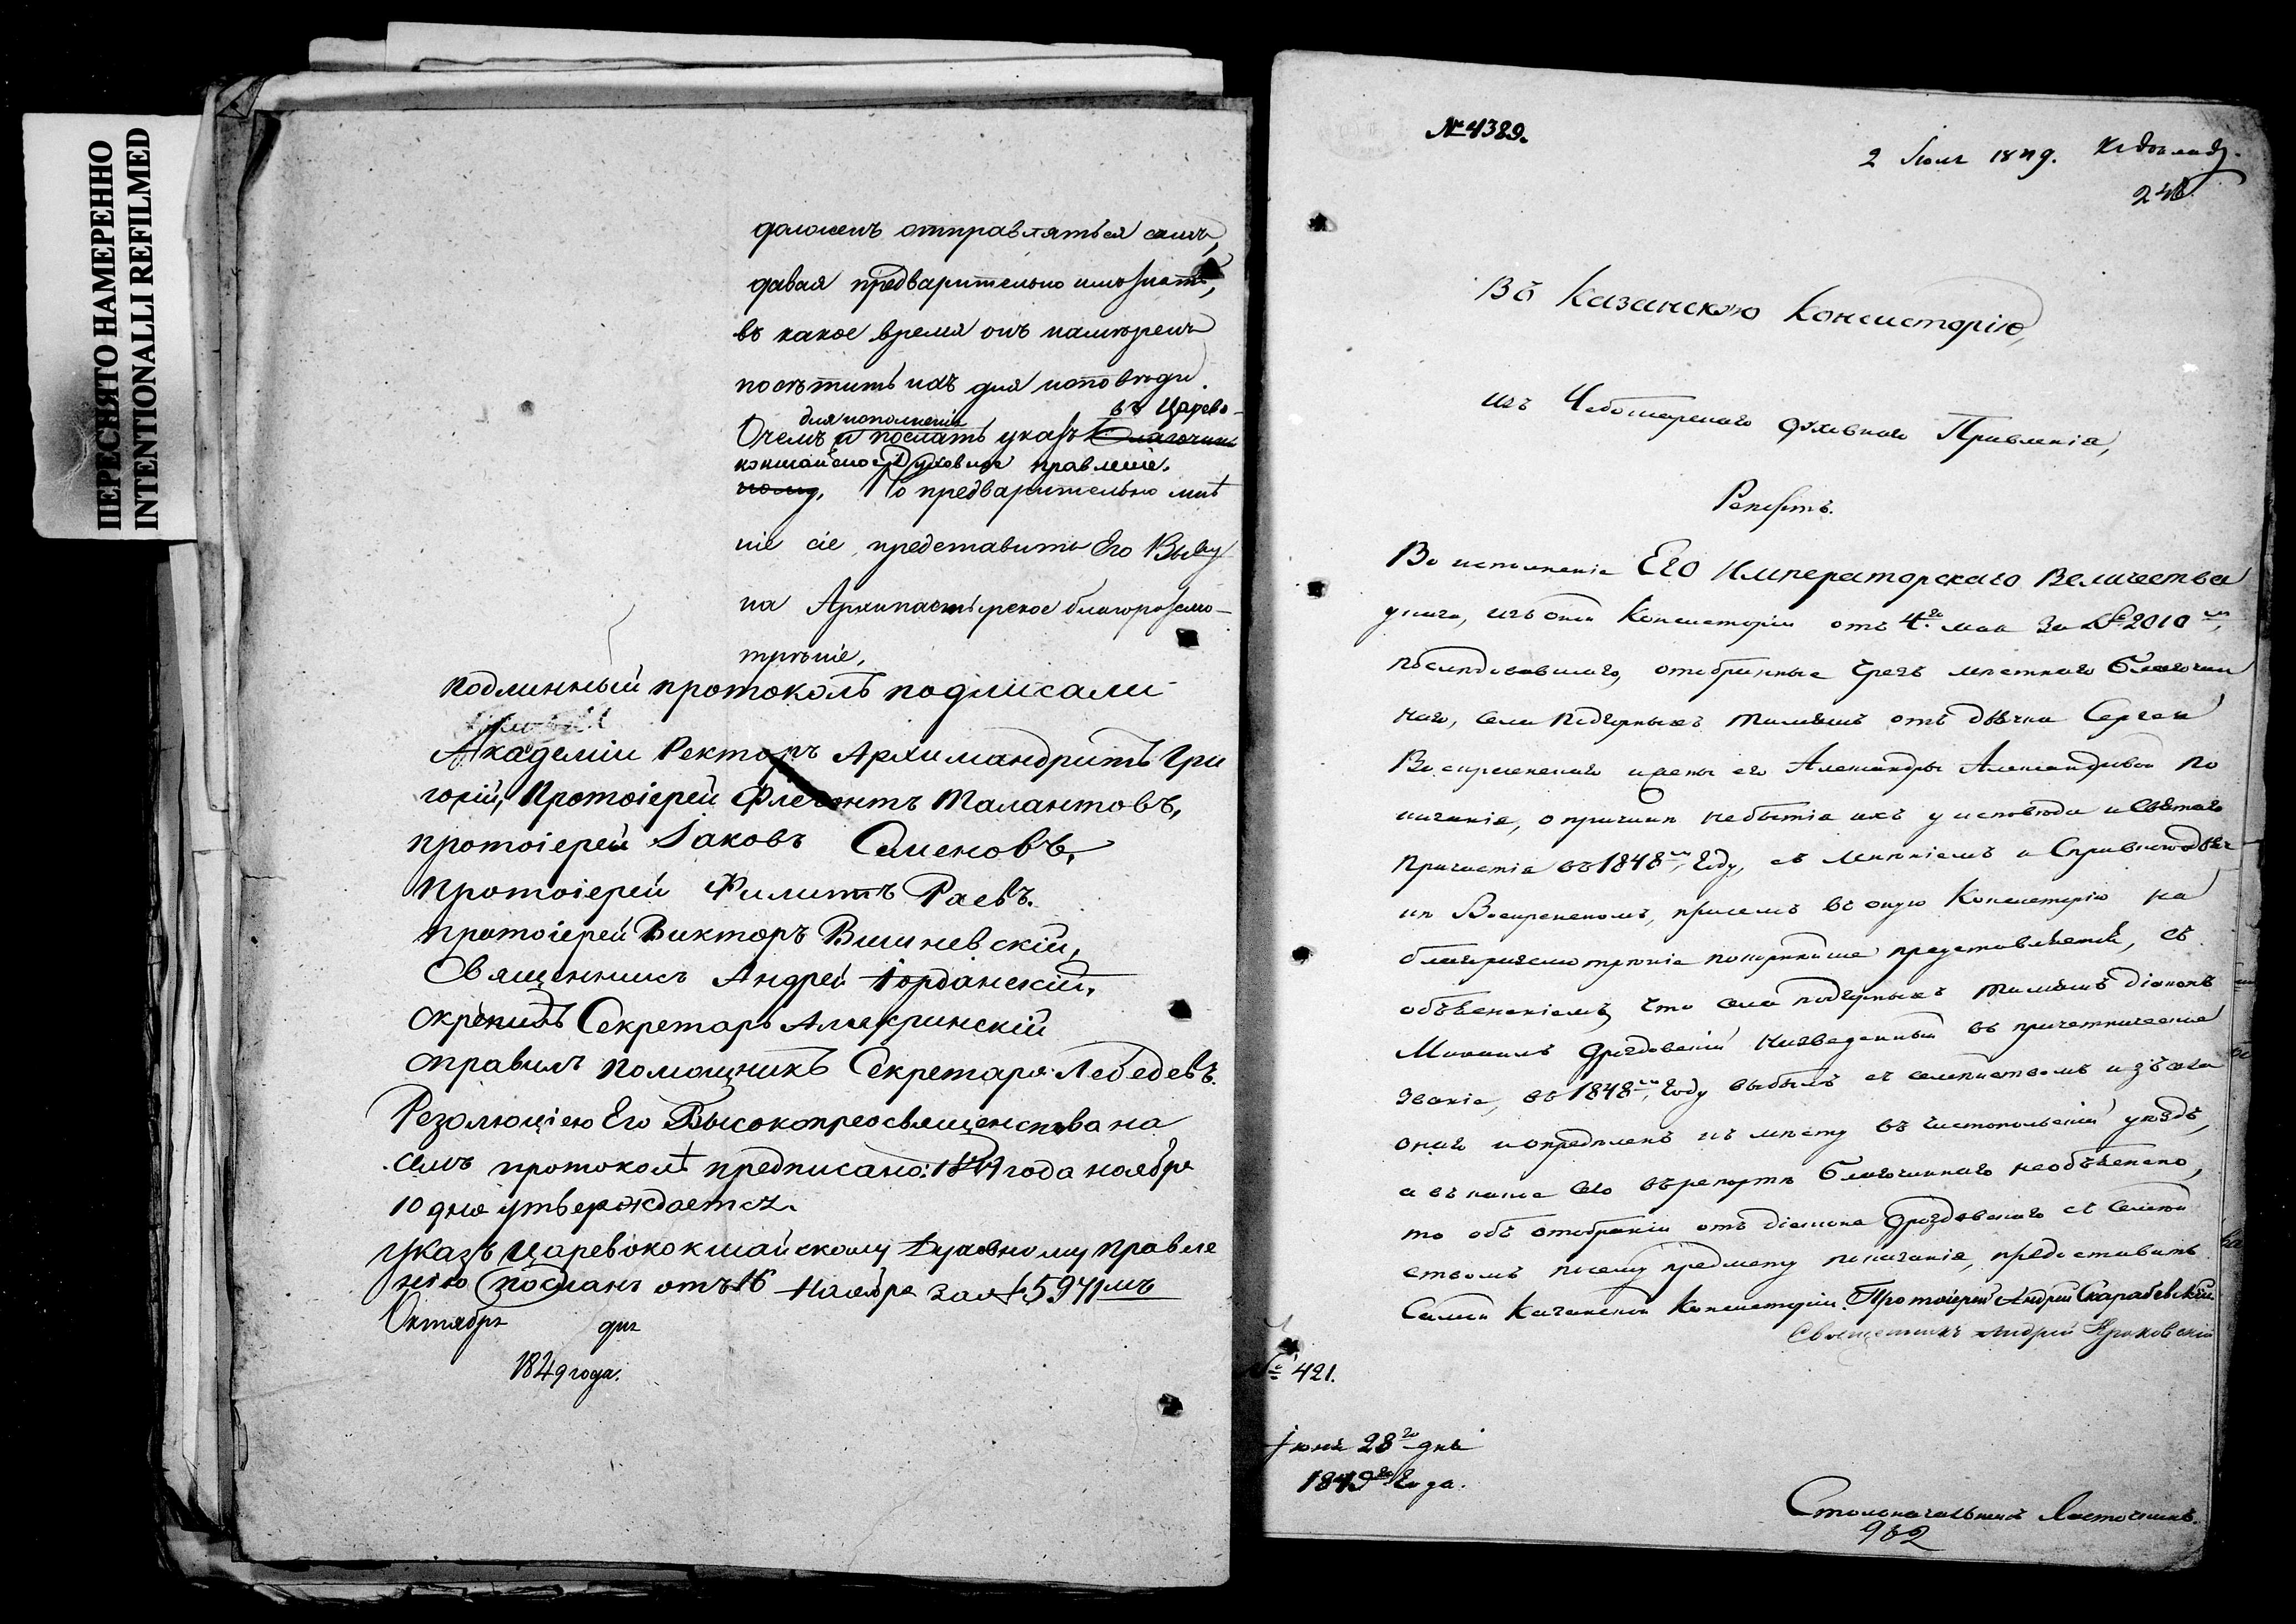 ПЕРЕСНЯТО НАМЕРЕННО
INTENTIONALLI REFILMED
долженъ отправляться самъ,
давая предварительно имъ знать,
въ какое время онъ намѣренъ
посѣтить ихъ для исповѣди.
для исполненія въ Царево-
О чемъ и послать указъ Благочин
кокшайское Духовное правленіе.
ному. Но предварительно мнѣ
ніе сіе представить Его Высву
на Архипастырское благоразсмо-
трѣніе.
подлинный протоколъ подписали
Академіи Ректоръ Архимандритъ Гри
горій, Протоіерей Флегонтъ Талантовъ,
протоіерей Іаковъ Семеновъ,
Протоіерей Филиппъ Раевъ.
протоіерей Викторъ Вишневскій,
Священникъ Андрей Іорданскій,
скрепилъ Секретарь Алякринскій
справилъ помощникъ Секретаря Лебедевъ.
Резолюціею Его Высокопреосвященства на
семъ протоколѣ предписано: 1849 года ноября
10 дня утверждается.
Указъ Царевококшайскому Духовному правле
нію посланъ отъ 16 Ноября за № 5941мъ
Октября дня
1849 года.
№ 4389.
2 Іюля 1849. Къ докладу.
Въ Казанскую Консисторію,
изъ Чебоксарскаго Духовнаго Правленія,
Репортъ.
Во исполненіе Его Императорскаго Величества
указа, изъ оной Консисторіи отъ 4го мая за № 2010мъ,
последовавшаго, отобранные чрезъ мѣстнаго Благочин
наго, села Подгорныхъ Тимяшъ отъ дьячка Сергея
Воскресенскаго и жены его Александры Александровой по
казанія, о причинѣ небытія ихъ у исповѣди и Святаго
Причастія въ 1848мъ году, съ мнѣніемъ и Справкою о дьяч
кѣ Воскресенскомъ, присемъ въ оную Консисторію на
благоразсмотрѣніе покорнѣйше представляетъ, съ
объясненіемъ, что села подгорныхъ Тимяшъ діаконъ
Михаилъ Дроздовскій низведенный въ причетническое
званіе, въ 1848мъ году выбылъ съ семействомъ изъ села
онаго и опредѣленъ къ мѣсту въ Чистопольскій уѣздъ,
а въ какое село въ репортѣ Благочиннаго необъяснено,
то объ отобраніи отъ діакона Дроздовскаго съ Семей
ствомъ по сему предмету показанія, предоставить
Самой Казанской Консисторіи. Протоіерей Андрей Скарабевскій
Священникъ Андрей Кроковскій
№ 421.
Іюня 28го дня
1849го Года.
Столоначальникъ Ласточкинъ.
982